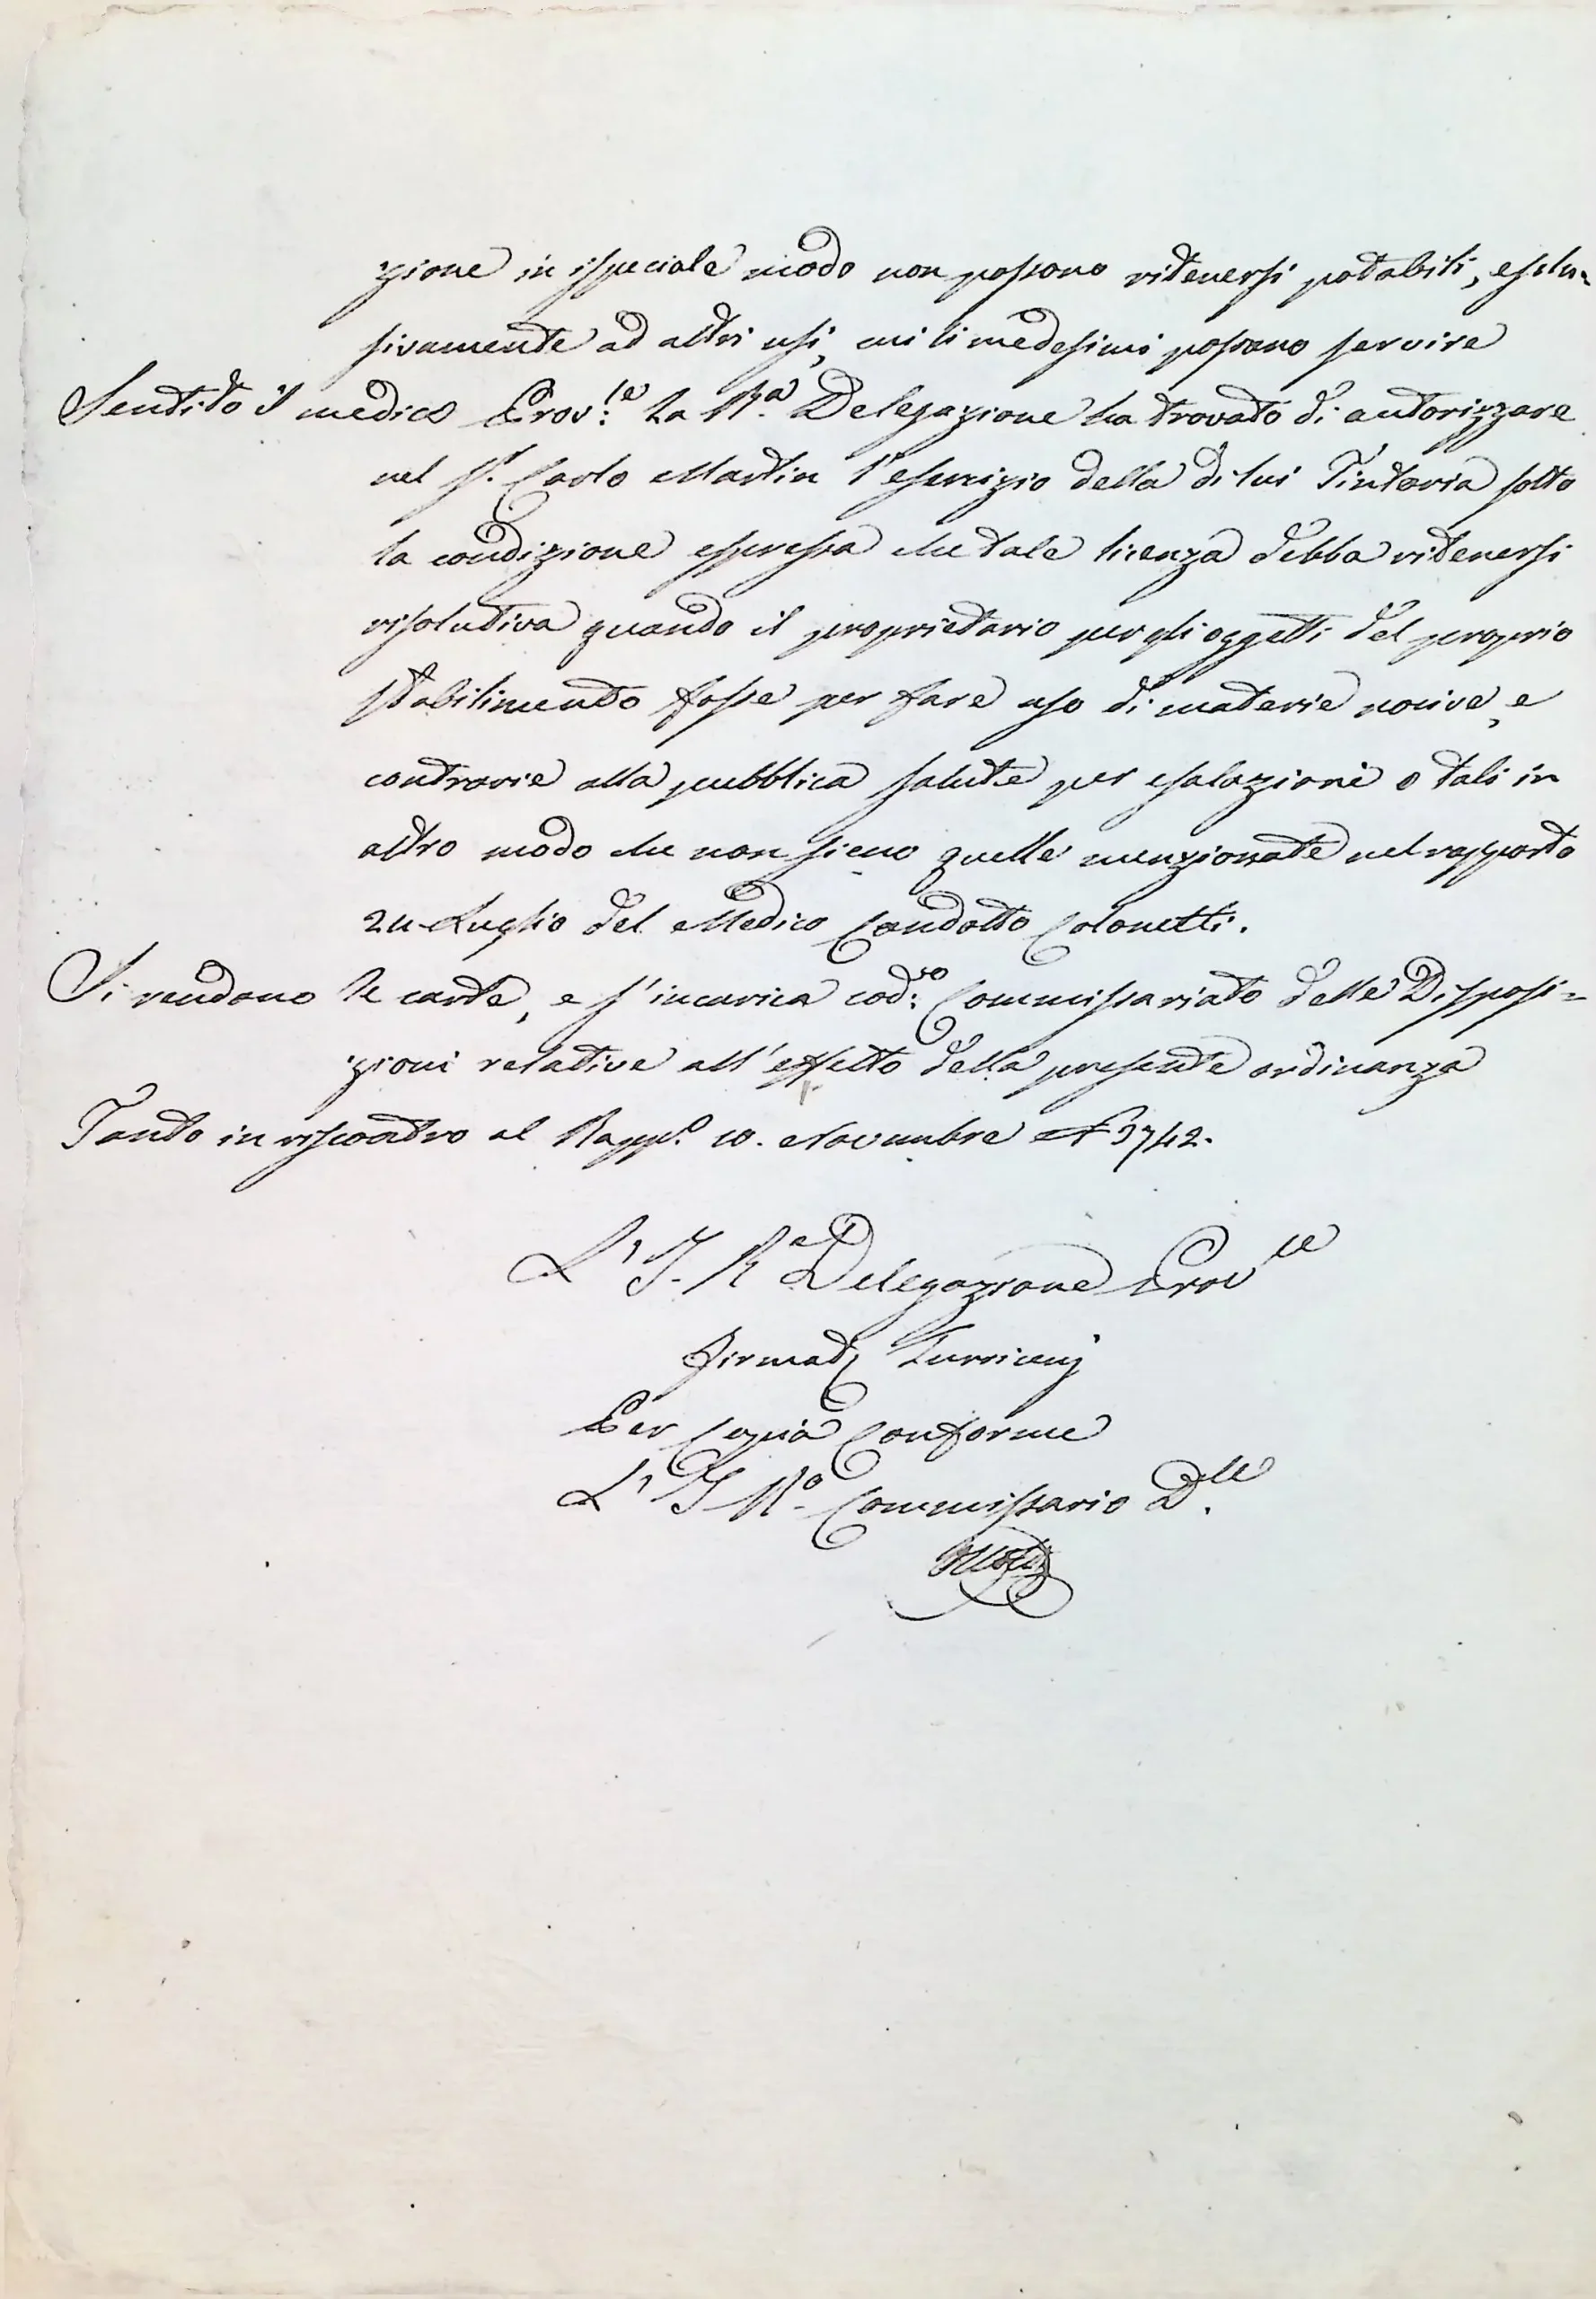 zione in ispeciale modo non possono ritenersi potabili, esclu-
sivamente ad altri usi, cui li medesimi possono servire
Sentito il medico Prov:le La R.a Delegazione ha trovato di autorizzare
nel S.r Carlo Martin l'esercizio della di lui Tintoria sotto
la condizione espressa che tale licenza debba ritenersi
risolutiva quando il proprietario per gli oggetti del proprio
stabilimento fosse per fare uso di materie nocive, e
contrarie alla pubblica salute per esalazioni o tali in
altro modo che non sieno quelle menzionate nel rapporto
24 Luglio del Medico Condotto Colonetti.
Si rendono le carte, e s'incarica cod:ro Commissariato delle Disposi=
zioni relative all'effetto della presente ordinanza
Tanto in riscontro al Rapp.o 10. Novembre N 3742.
L'I. R.e Delegazione Prov.le
Firmat
Per Copia Conforme
L'I R.o Commissario D.le